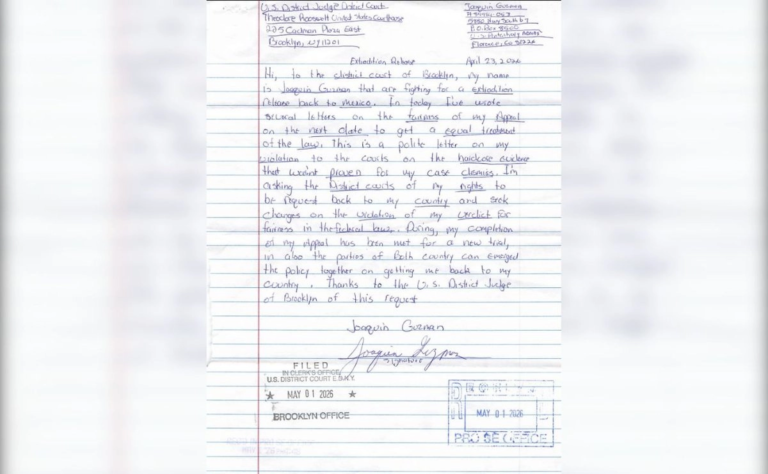 U.S. District Judge District Court
Theodore Roosevelt United States Courthouse
225 Cadman Plaza East
Brooklyn, NY 11201
Joaquin Guzman
P.O. Box 8500
Florence, Co
Extradition Release
April 23, 2026
Hi, to the district court of Brooklyn, my name
is Joaquin Guzman that are fighting for a extradition
release back to mexico. In today I've wrote
several letters on the fairness of my Appeal
on the next date to get a equal treatment
of the law. This is a polite letter on my
violation to the courts on the hardcore evidence
that wasnt proven for my case
asking the District courts of my rights to
be request back to my country and seek
changes on the violation of my verdict for
fairness in the federal law. During, my completion
of my Appeal has been met for a new trial,
in also the parties of Both country can
the policy together on getting me back to my
country. Thanks to the U.S. District Judge
of Brooklyn of this request
Joaquin Guzman
Signature
FILED
IN CLERK'S OFFICE
U.S. DISTRICT COURT E.D.N.Y.
★ MAY 01 2026 ★
BROOKLYN OFFICE
MAY 01 2026
PRO SE OFFICE